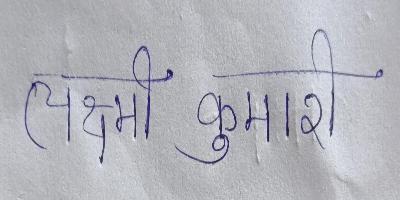 लक्ष्मी कुमारी